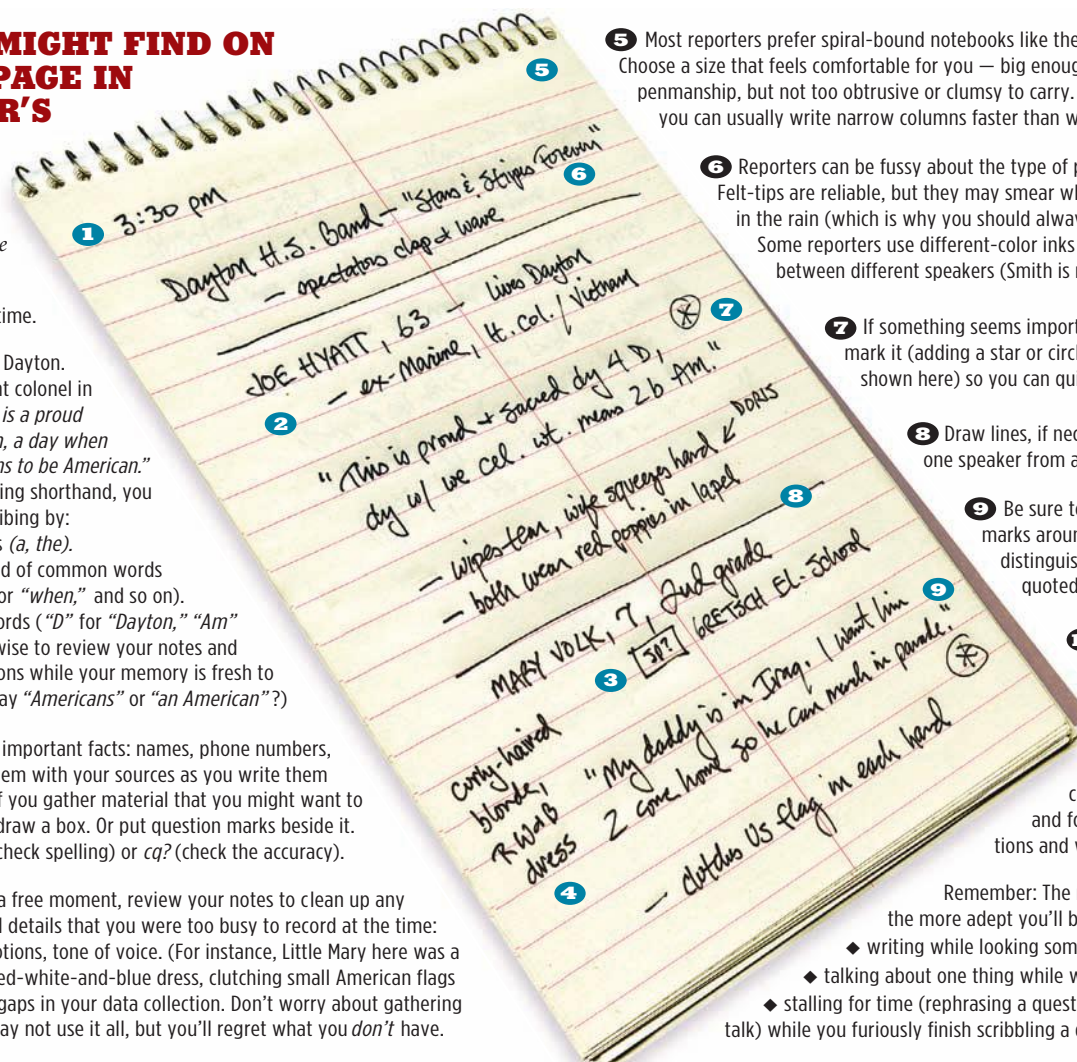 MIGHT FIND ON
PAGE IN
R'S
e
time.
Dayton.
nt colonel in
is a proud
n, a day when
ns to be American."
ing shorthand, you
ibing by:
s (a, the).
d of common words
or "when," and so on).
ords ("D" for "Dayton," "Am"
wise to review your notes and
ons while your memory is fresh to
ay "Americans" or "an American"?)
important facts: names, phone numbers,
em with your sources as you write them
f you gather material that you might want to
draw a box. Or put question marks beside it.
check spelling) or cq? (check the accuracy).
a free moment, review your notes to clean up any
l details that you were too busy to record at the time:
otions, tone of voice. (For instance, Little Mary here was a
ed-white-and-blue dress, clutching small American flags
gaps in your data collection. Don't worry about gathering
ay not use it all, but you'll regret what you don't have.
1 3:30 pm
5
Dayton H.S. Band — "Stars & Stripes Forever"
6
— spectators clap + wave
JOE HYATT, 63 — lives Dayton
— ex-Marine, lt. col. / Vietnam
7
2
"This is proud + sacred dy 4 D,
dy w/ we cel. wt. means 2 b Am."
— wipes tear, wife squeezes hard DORIS
— both wear red poppies in lapel
8
MARY VOLK, 7, 2nd grade
sp? GRETSCH EL. School
3
9
"My daddy is in Iraq. I want him
2 come home so he can march in parade."
curly-haired
blonde,
RW&B
dress
4
— clutches US flag in each hand
5 Most reporters prefer spiral-bound notebooks like the
Choose a size that feels comfortable for you — big enoug
penmanship, but not too obtrusive or clumsy to carry.
you can usually write narrow columns faster than w
6 Reporters can be fussy about the type of p
Felt-tips are reliable, but they may smear wh
in the rain (which is why you should alway
Some reporters use different-color inks
between different speakers (Smith is r
7 If something seems import
mark it (adding a star or circl
shown here) so you can qui
8 Draw lines, if nec
one speaker from a
9 Be sure to
marks aroun
distinguis
quoted
1
c
and fo
tions and w
Remember: The
the more adept you'll b
◆ writing while looking som
◆ talking about one thing while w
◆ stalling for time (rephrasing a quest
talk) while you furiously finish scribbling a